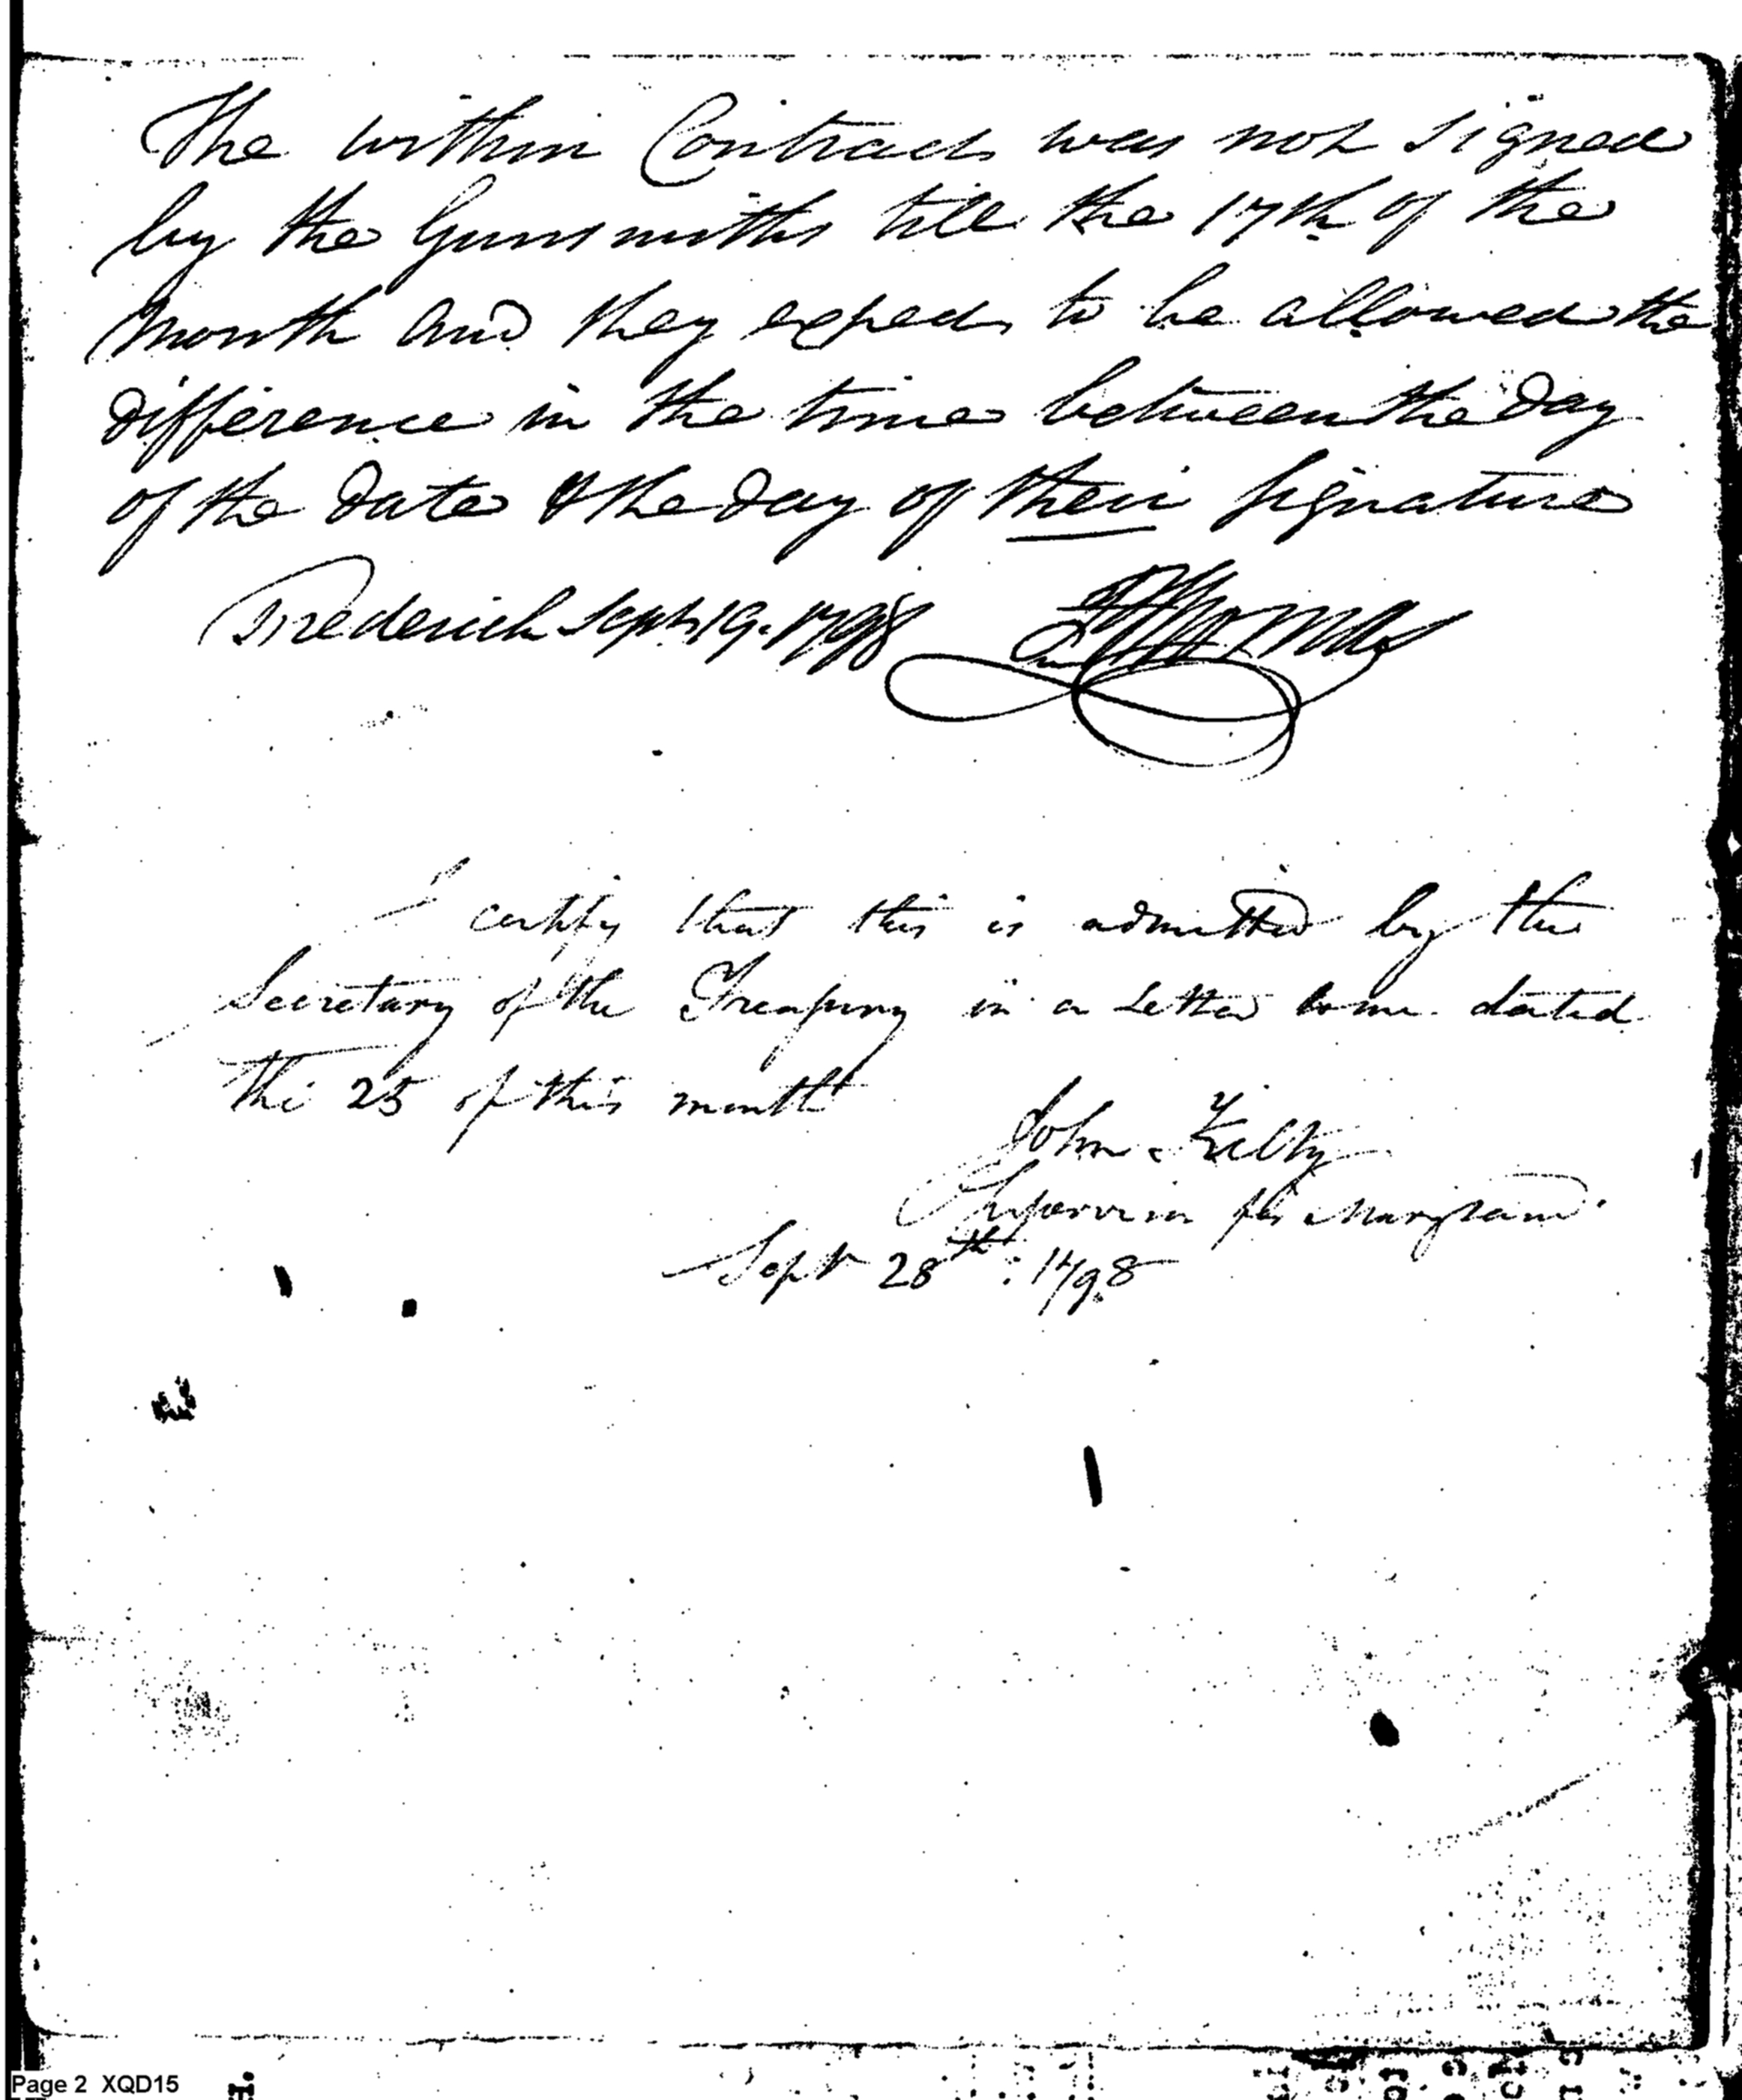 The within Contract was not signed
by the Gunsmiths till the 17th of the
Month and they expect to be allowed the
difference in the time between the day
of the date & the day of their signature
Frederick Sept 19. 1798
I certify that this is admitted by the
Secretary of the Treasury in a Letter to me dated
the 25 of this month
John Kilty
Supervisor for Maryland
Sept 28th: 1798
Page 2 XQD15